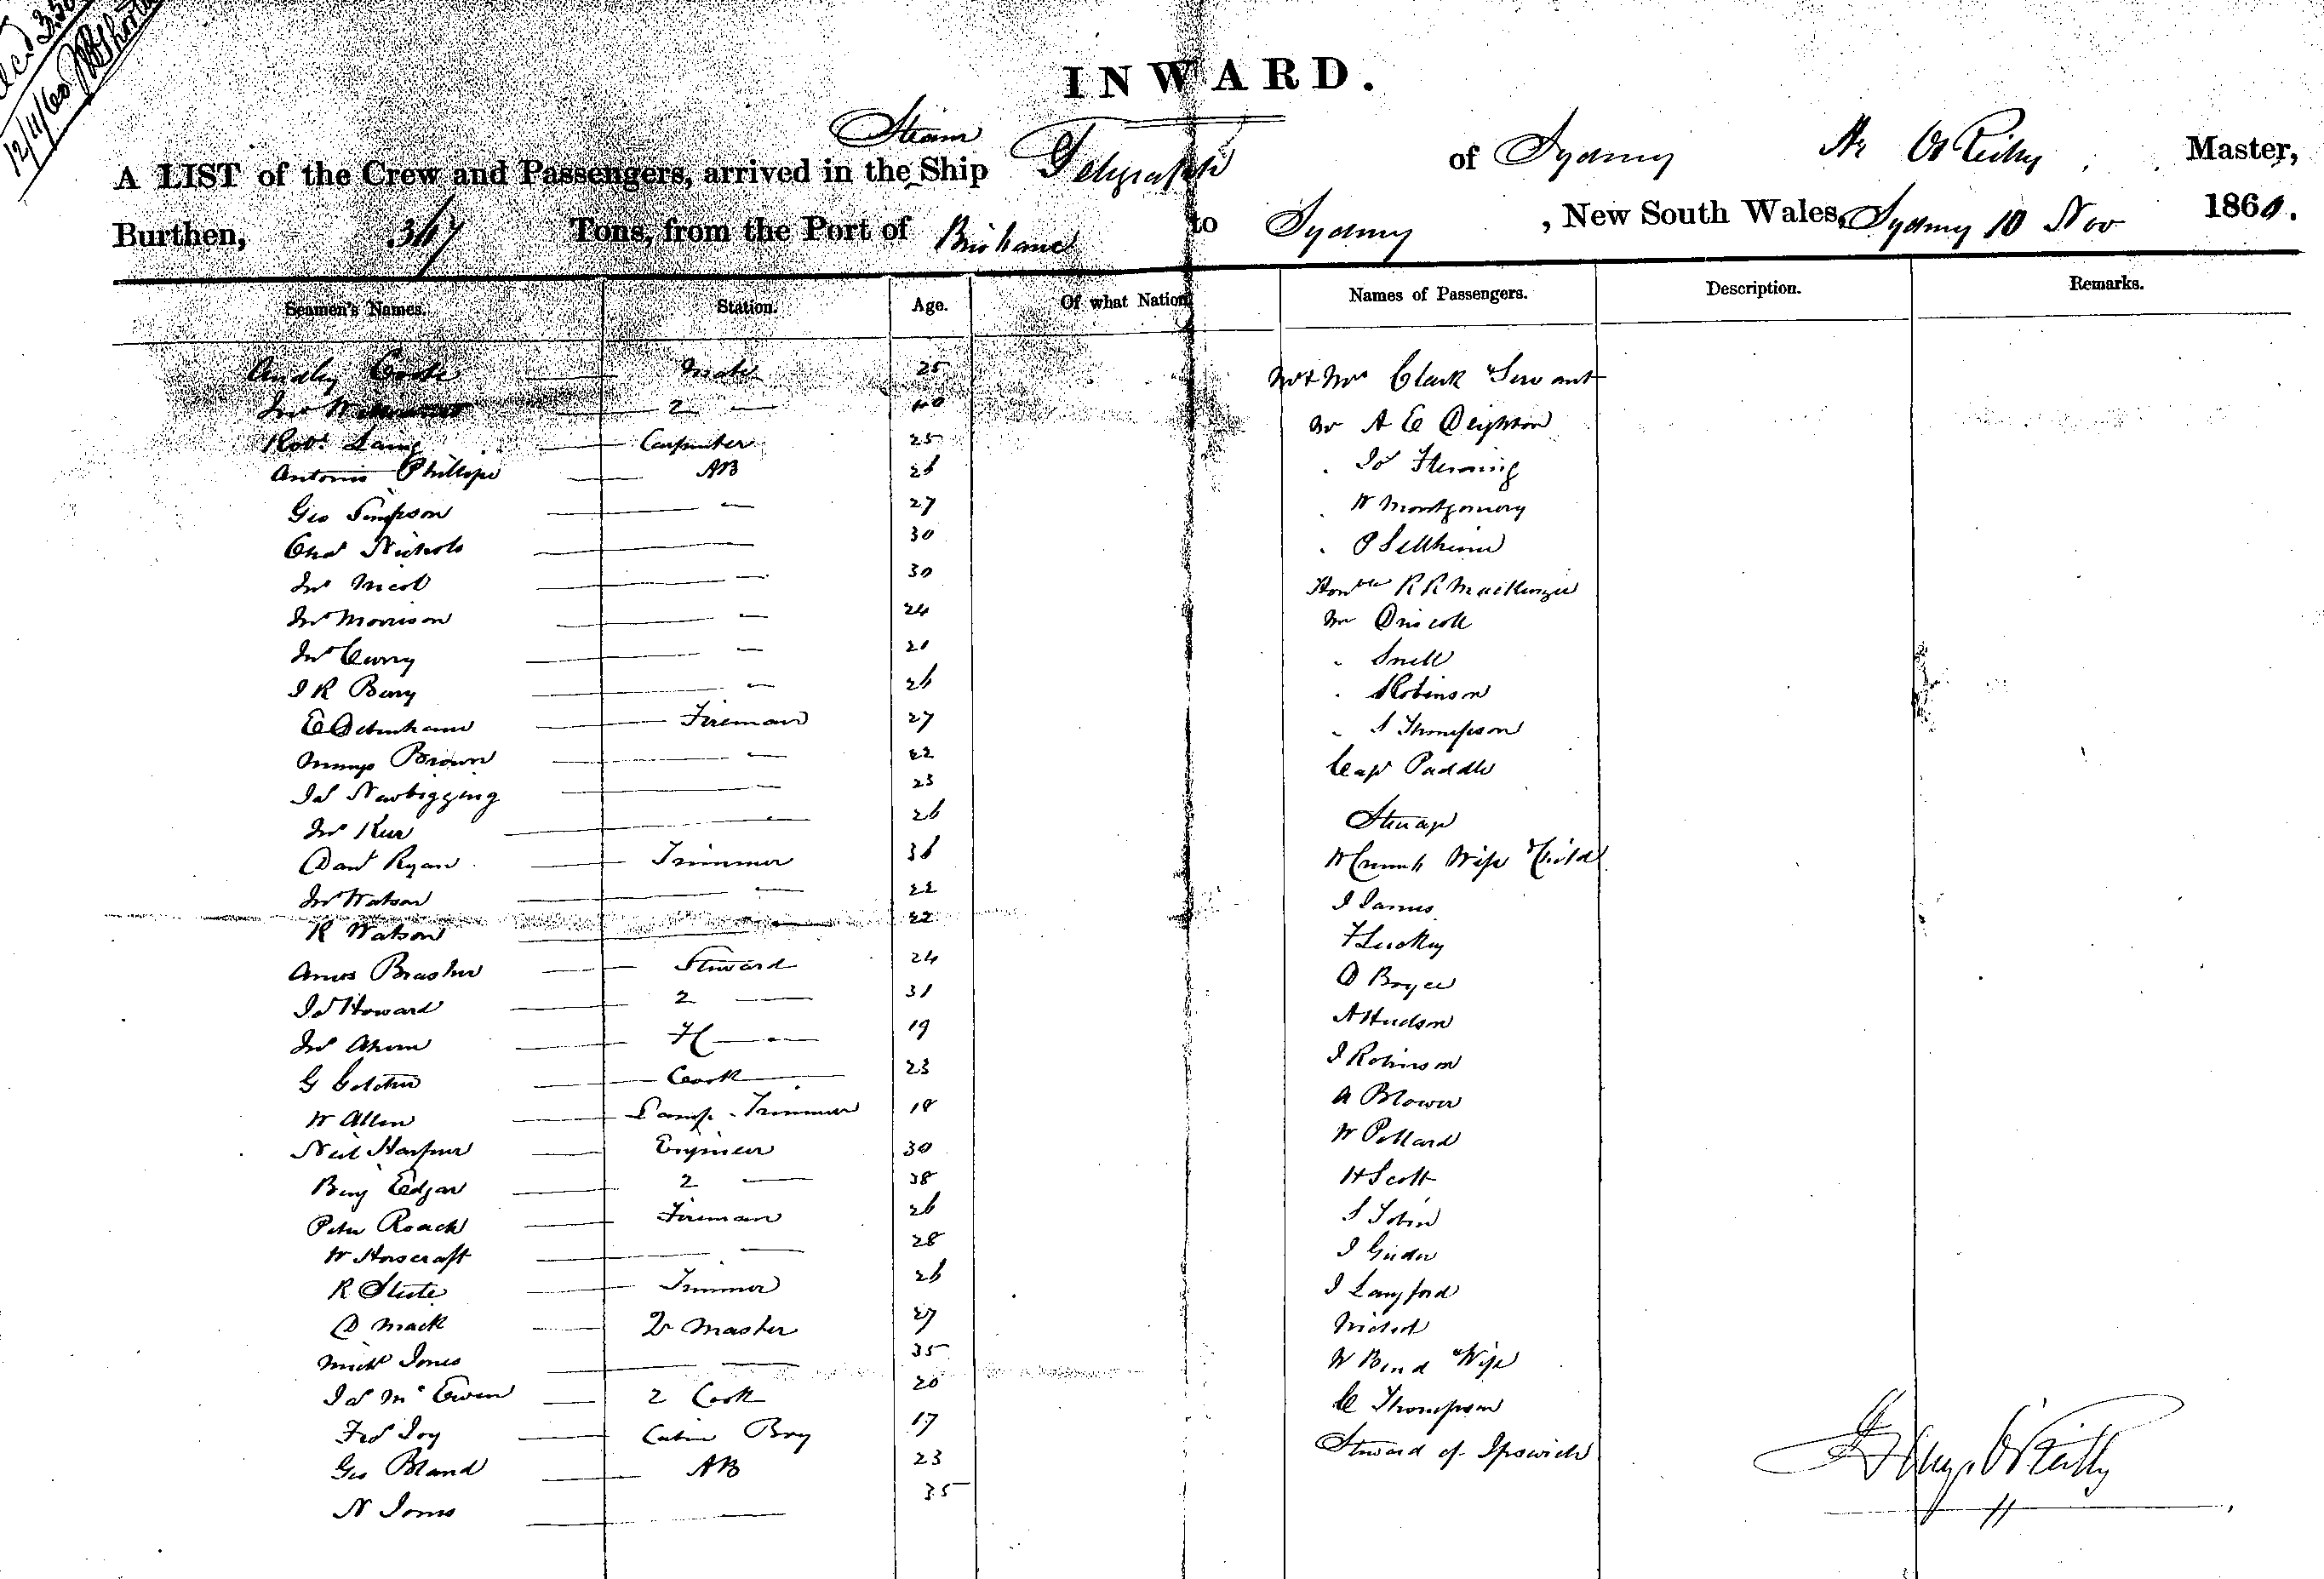 12/11/60
INWARD.
Steam
A LIST of the Crew and Passengers, arrived in the Ship Telegraph of Sydney Hy O'Reilly Master,
Burthen, 367 Tons, from the Port of Brisbane to Sydney, New South Wales, Sydney 10 Nov 1860.
Seamen's Names. Station. Age. Of what Nation Names of Passengers. Description. Remarks.
Audley Coote — Mate 25 Mr & Mrs Clark & Servant
Jno — 2 — 40 Mr A E Deighton
Robt Laing — Carpenter 25 " Jos Fleming
Antonio Phillips — AB 26 " W Montgomery
Geo Simpson — — 27 " P Sellheim
Chas Nichols — — 30
Jno Nicol — — 30 Honble R R MacKenzie
Jno Morrison — — 24 Mr Driscoll
Jno Curry — — 21 " Snell
J R Berry — — 26 " Robinson
E Debenham — Fireman 27 " S Thompson
Mungo Brown — — 22 Capt Paddle
Jas Newbigging — — 23
Jno Kerr — — 26 Steerage
Danl Ryan — Trimmer 36 W Crumb Wife & Child
Jno Watson — — 22 J James
R Watson — — 22 F Luckey
Amos Brasher — Steward 24 D Boyce
Jas Howard — 2 — 31 A Hudson
Jno Ahern — F C — 19 J Robinson
G — Cook 23 A Blower
W Allen — Lamp Trimmer 18 W Pollard
Neil Harper — Engineer 30 H Scott
Benj Edgar — 2 — 38 S Tobin
Peter Roach — Fireman 26 J
W Horscraft — — 28 J Langford
R Steele — Trimmer 26
D Mack — Qr Master 27 W Bend & Wife
Michl Jones — — 35 C Thompson
Jas McEwen — 2 Cook 20 Steward of Ipswich
Fred Joy — Cabin Boy 17
Geo Bland — AB 23
N Jones — — 35
Hy O'Reilly